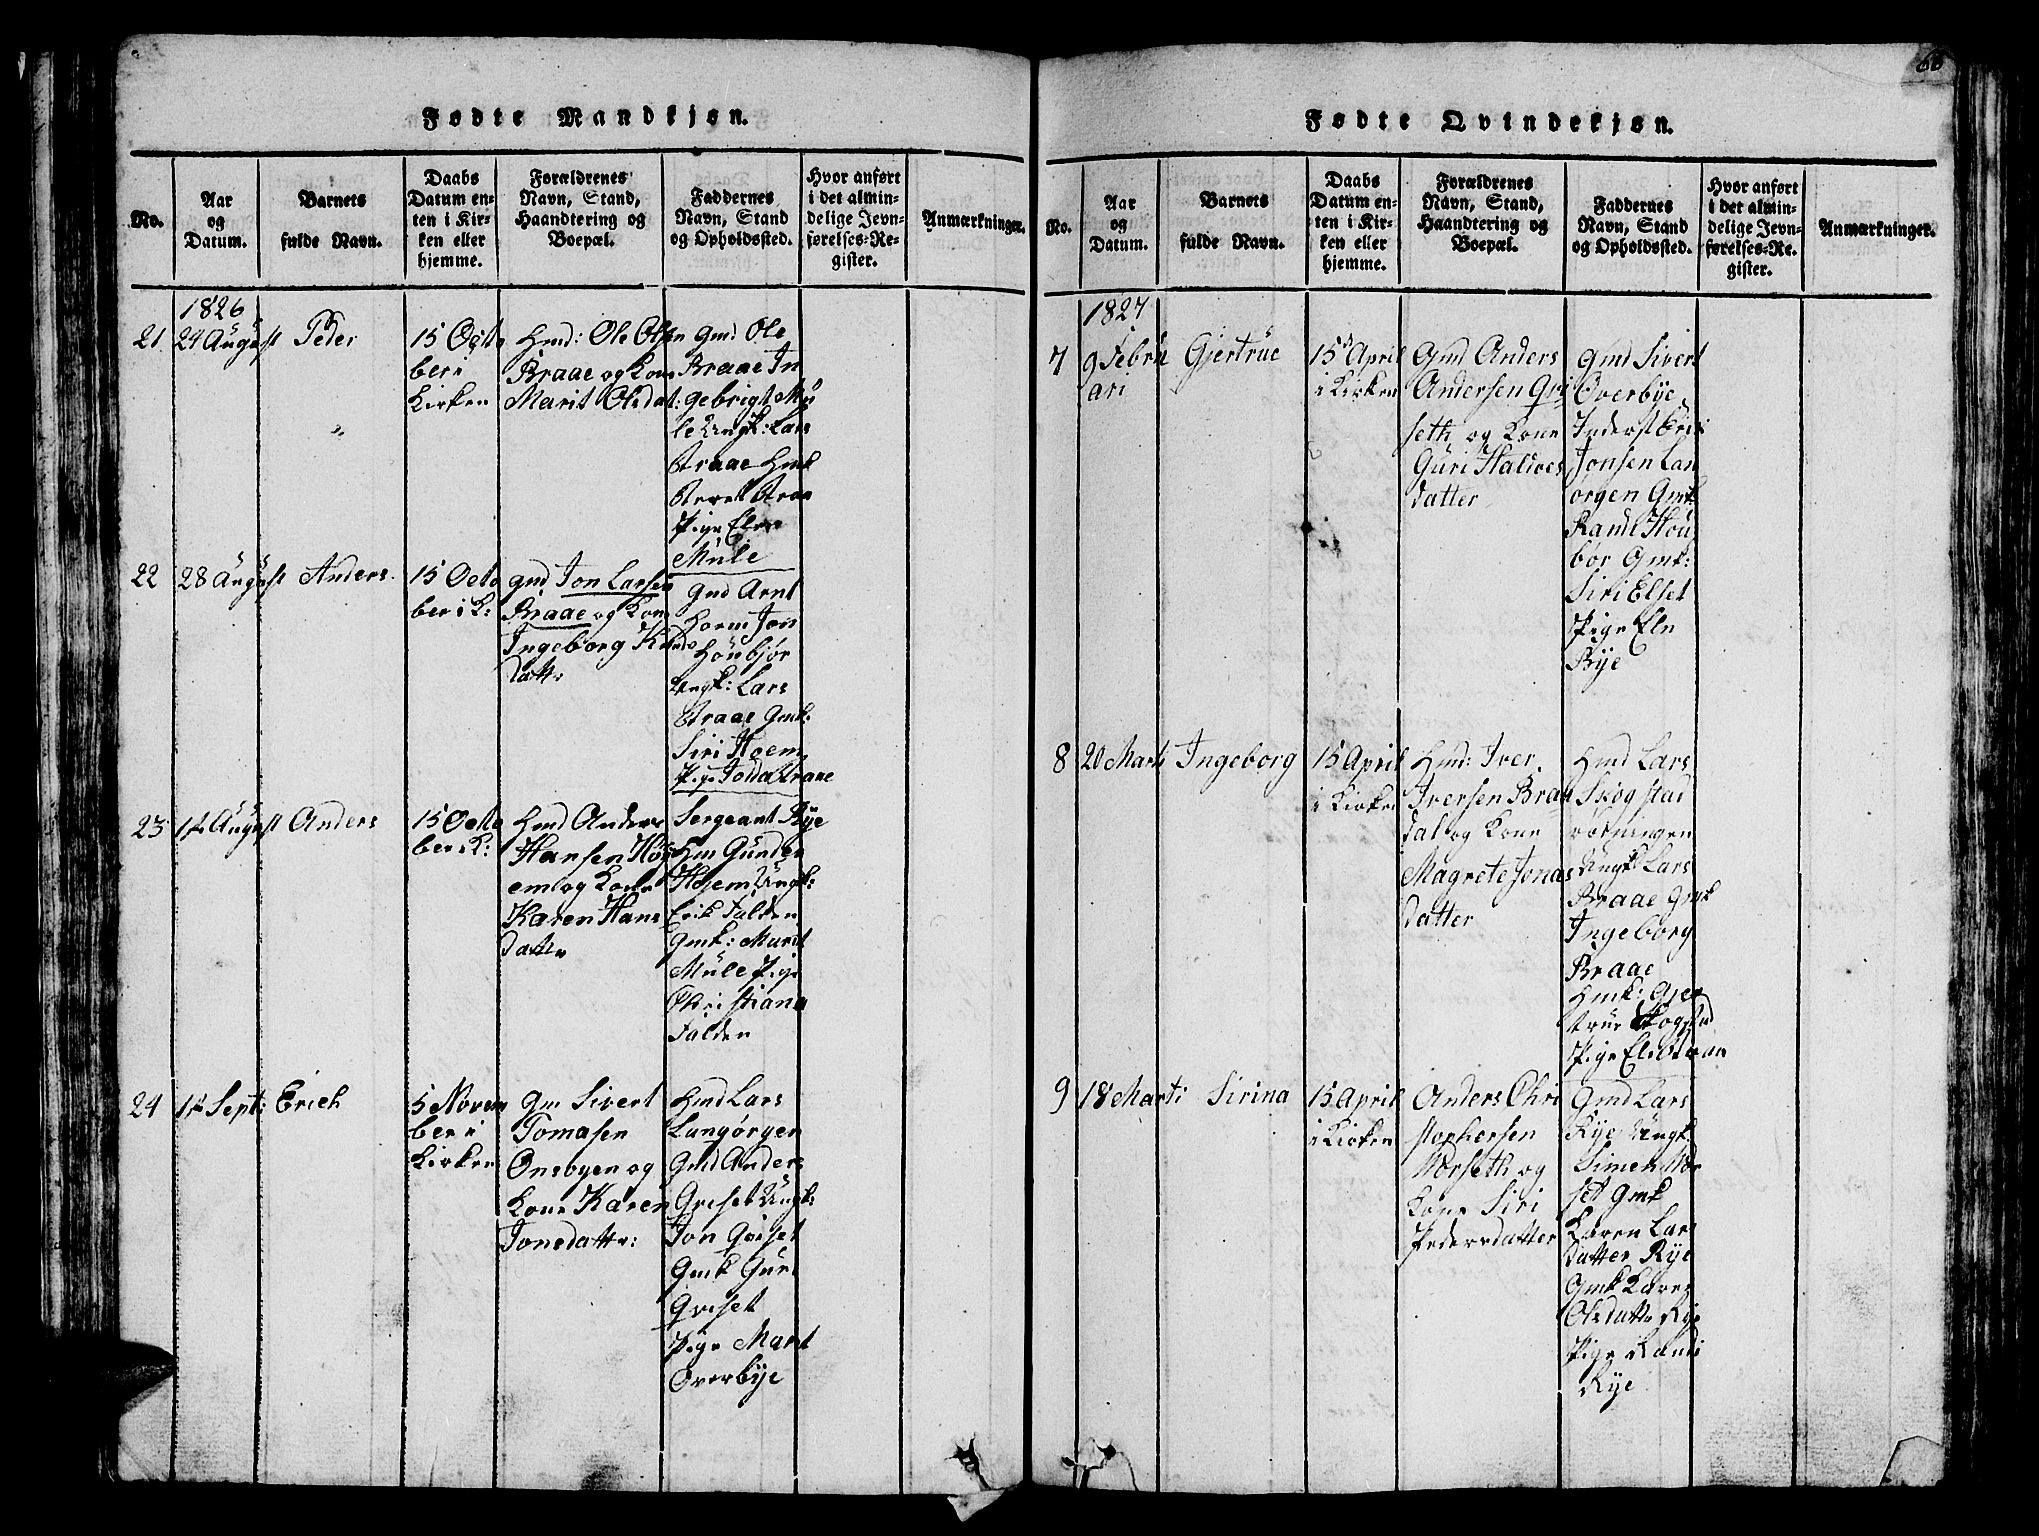 Fødte Mandkjøn.
No.
Aar
og
Datum.
Barnets
fulde Navn.
Daabs
Datum en-
ten i Kir-
ken eller
hjemme.
Forældrenes
Navn, Stand,
Haandtering og
Boepæl.
Faddernes
Navn, Stand
og Opholdssted.
Hvor anført
i det almin-
delige Jevn-
førelses-Re-
gister.
Anmærkninger.
1826
21
29 August
Peder
15 Octo
ber i
Kirken
Hmd: Ole Olsen
Braae og Kone
Marit Olsdat:
Gmd Ole
Braae In
gebrigt Mü
le Ungk: Lars
Braae Hmk
Braa
Pige Elen
Müle
22
28 August
Anders
15 Octo
ber i K:
gmd Jon Larsen
Braae og Kone
Ingeborg Knuds
datte
Gmd Arnt
Hoem Jon
Höubjør
Ungk: Lars
Braae Gmk:
Siri Hoem
Pige Braae
23
August
Anders
15 Octo
ber i K:
Hmd Anders
Hansen Höj
em og Kone
Karen Hans
datte
Sergeant Rye
Hm Gunder
Höjem Ungk:
Erik Falden
Gmk: Marit
Müle Pige
Christiana
Falden
24
Sept:
Erich
5 Novem
ber i
Kirken
Gm Sivert
Tomasen
Onsbyen og
Kone Karen
Jonsdatte:
Hmd Lars
Langørgen
Gmd Anders
Griset Ungk:
Jon Griset
Gmk Guri
Griset
Pige Marit
Overbÿe
68
Fødte Qvindekjøn.
No.
Aar
og
Datum.
Barnets
fulde Navn.
Daabs
Datum en-
ten i Kir-
ken eller
hjemme.
Forældrenes
Navn, Stand,
Haandtering og
Boepæl.
Faddernes
Navn, Stand
og Opholdssted.
Hvor anført
i det almin-
delige Jevn-
førelses-Re-
gister.
Anmærkninger.
1827
7
9 Febru
ari
Gjertrue
15 April
i Kirken
Gmd Anders
Andersen Gri
seth og Kone
Guri Haldoes
datter
Gmd Sivert
Overbÿe
Inderst Eric
Jonsen Lan
ørgen Gmk
Randi Höu
bør Gmk:
Siri Elset
Pige Eln
Rÿe
8
20 Marti
Ingeborg
15 April
i Kirken
Hmd: Iver
Iversen Braa
dal og Kone
Magrete Jonas
datter
Hmd Lars
Skogstad
Ungk Lars
Braae Gmk
Ingeborg
Braae
Hmk: Gjer
true Skogstad
Pige
9
18 Marti
Sirina
15 April
i Kirken
Anders Chri
stophersen
Norseth og
Kone Siri
Pedersdatter
Gmd Lars
Rÿe Ungk
Simen Nor
set Gmk
Karen Lars
datter Rÿe
Gmk Karen
Olsdatte Rÿe
Pige Randi
Rÿe